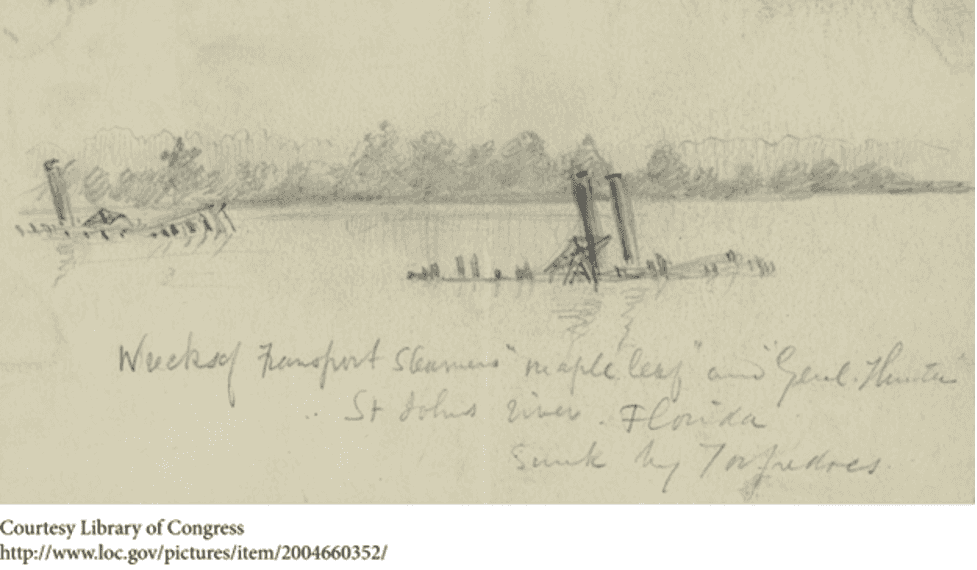 Wrecks of Transport Steamers "maple leaf" and "Genl. Hunter"
St Johns river. Florida
Sunk by Torpedoes
Courtesy Library of Congress
http://www.loc.gov/pictures/item/2004660352/